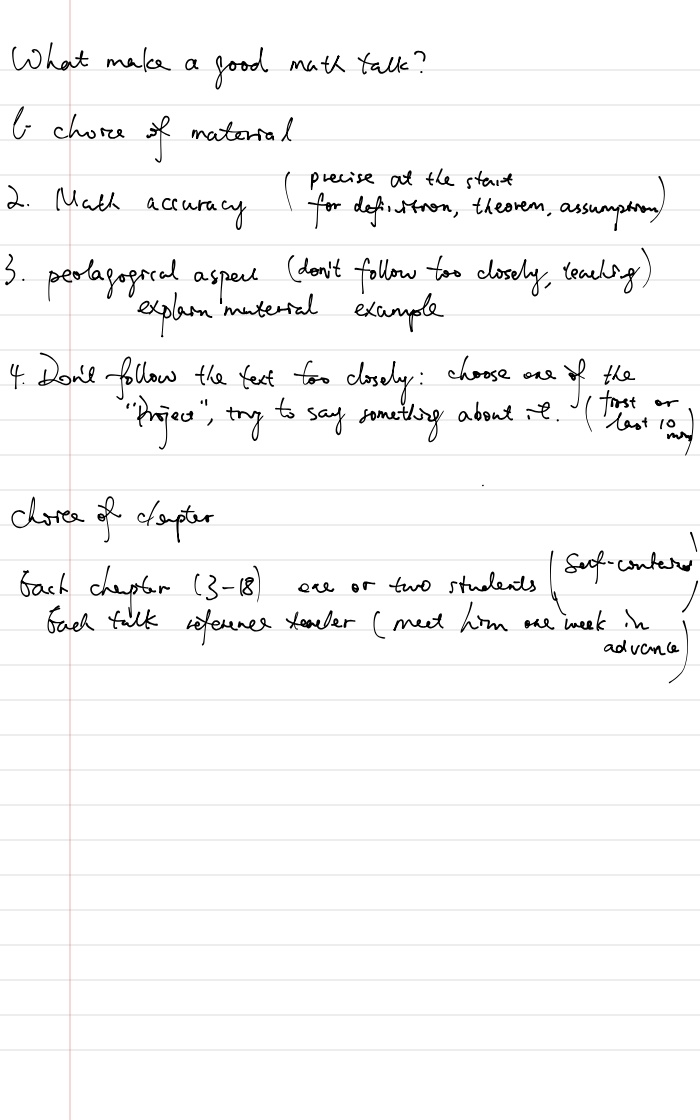 What make a good math talk?
1. choice of material
2. Math accuracy (precise at the start
for definition, theorem, assumption)
3. pedagogical aspect (don't follow too closely, teaching)
explain material example
4. Don't follow the text too closely: choose one of the
"Project", try to say something about it. (first or
last 10
min)
choice of chapter
Each chapter (3-18) one or two students (Self-contained)
Each talk reference teacher (meet him one week in
advance)